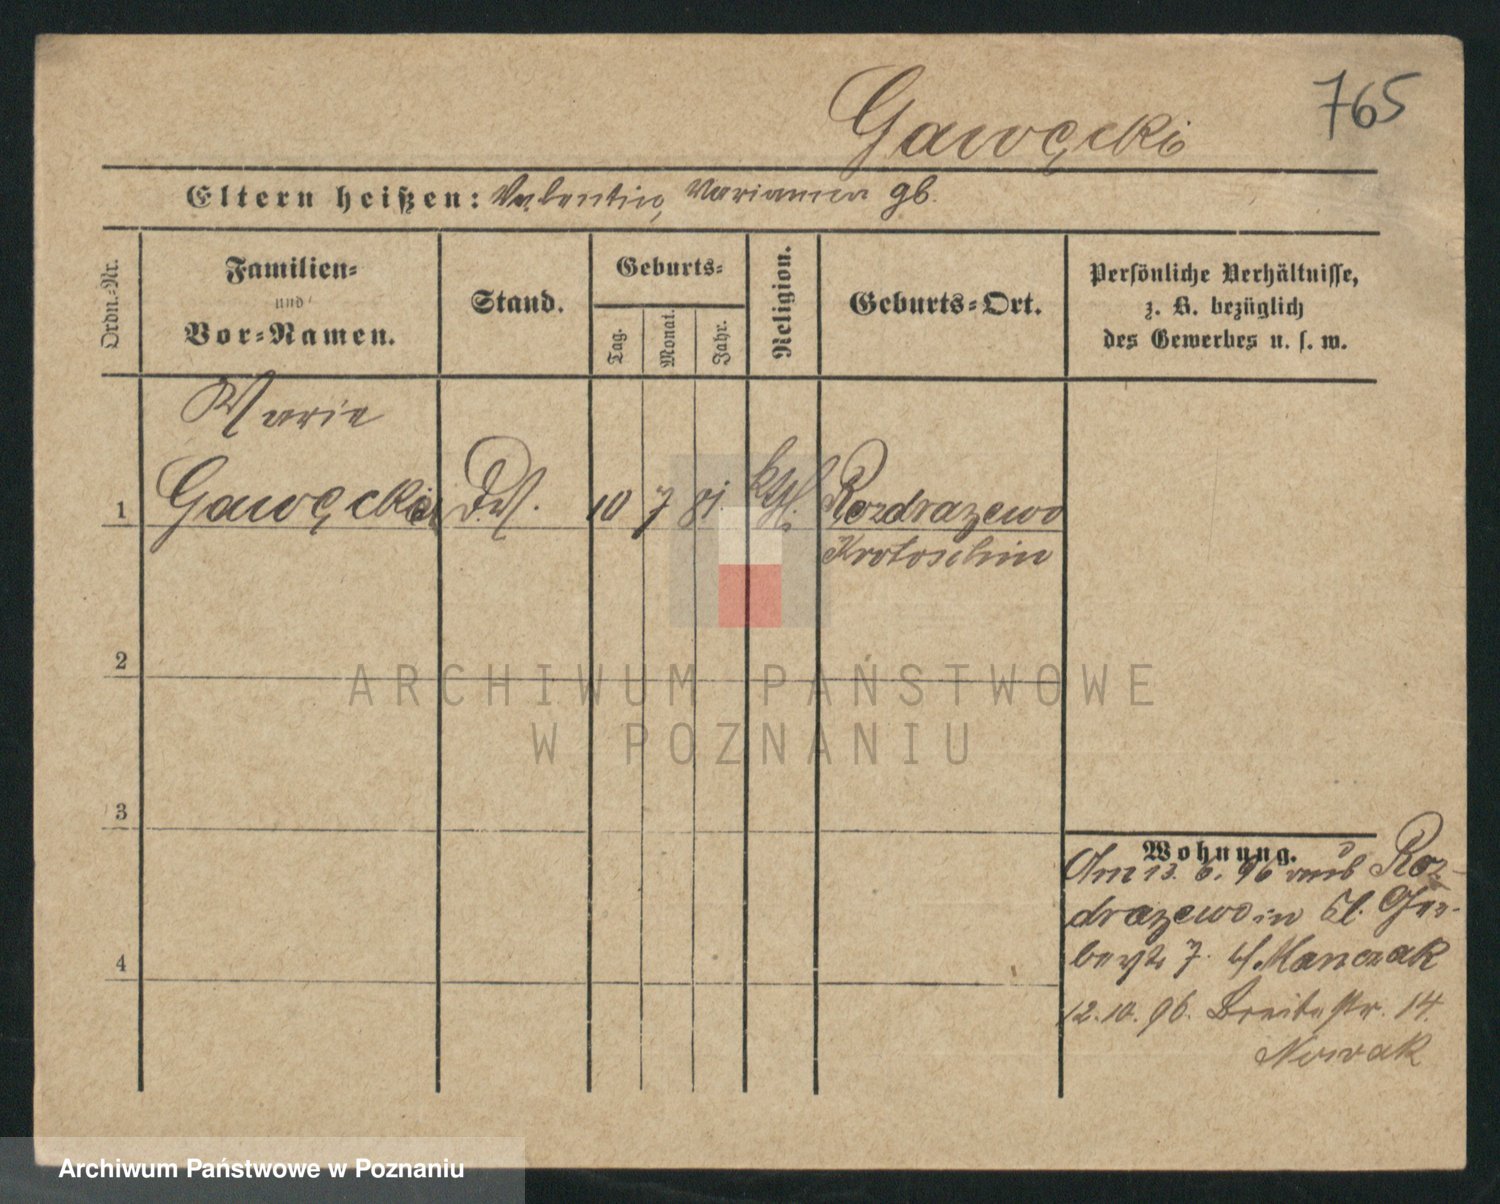 765
Gawęcki
Eltern heißen: Valentin, Marianna gb.
Ordn.-Nr.
Familien-
und
Vor-Namen.
Stand.
Geburts-
Tag.
Monat.
Jahr.
Religion.
Geburts-Ort.
Persönliche Verhältnisse,
z. B. bezüglich
des Gewerbes u. s. w.
Marie
1 Gawęcki 10 7 81. kth. Rozdrazewo
Krotoschin
2
ARCHIWUM PAŃSTWOWE
W POZNANIU
3
Wohnung.
Am 13. 6. 96 aus Roz-
drazewo in Kl. Ger-
berstr 7. b/ Manczak
4
12.10.96. Breitestr. 14.
Nowak
Archiwum Państwowe w Poznaniu